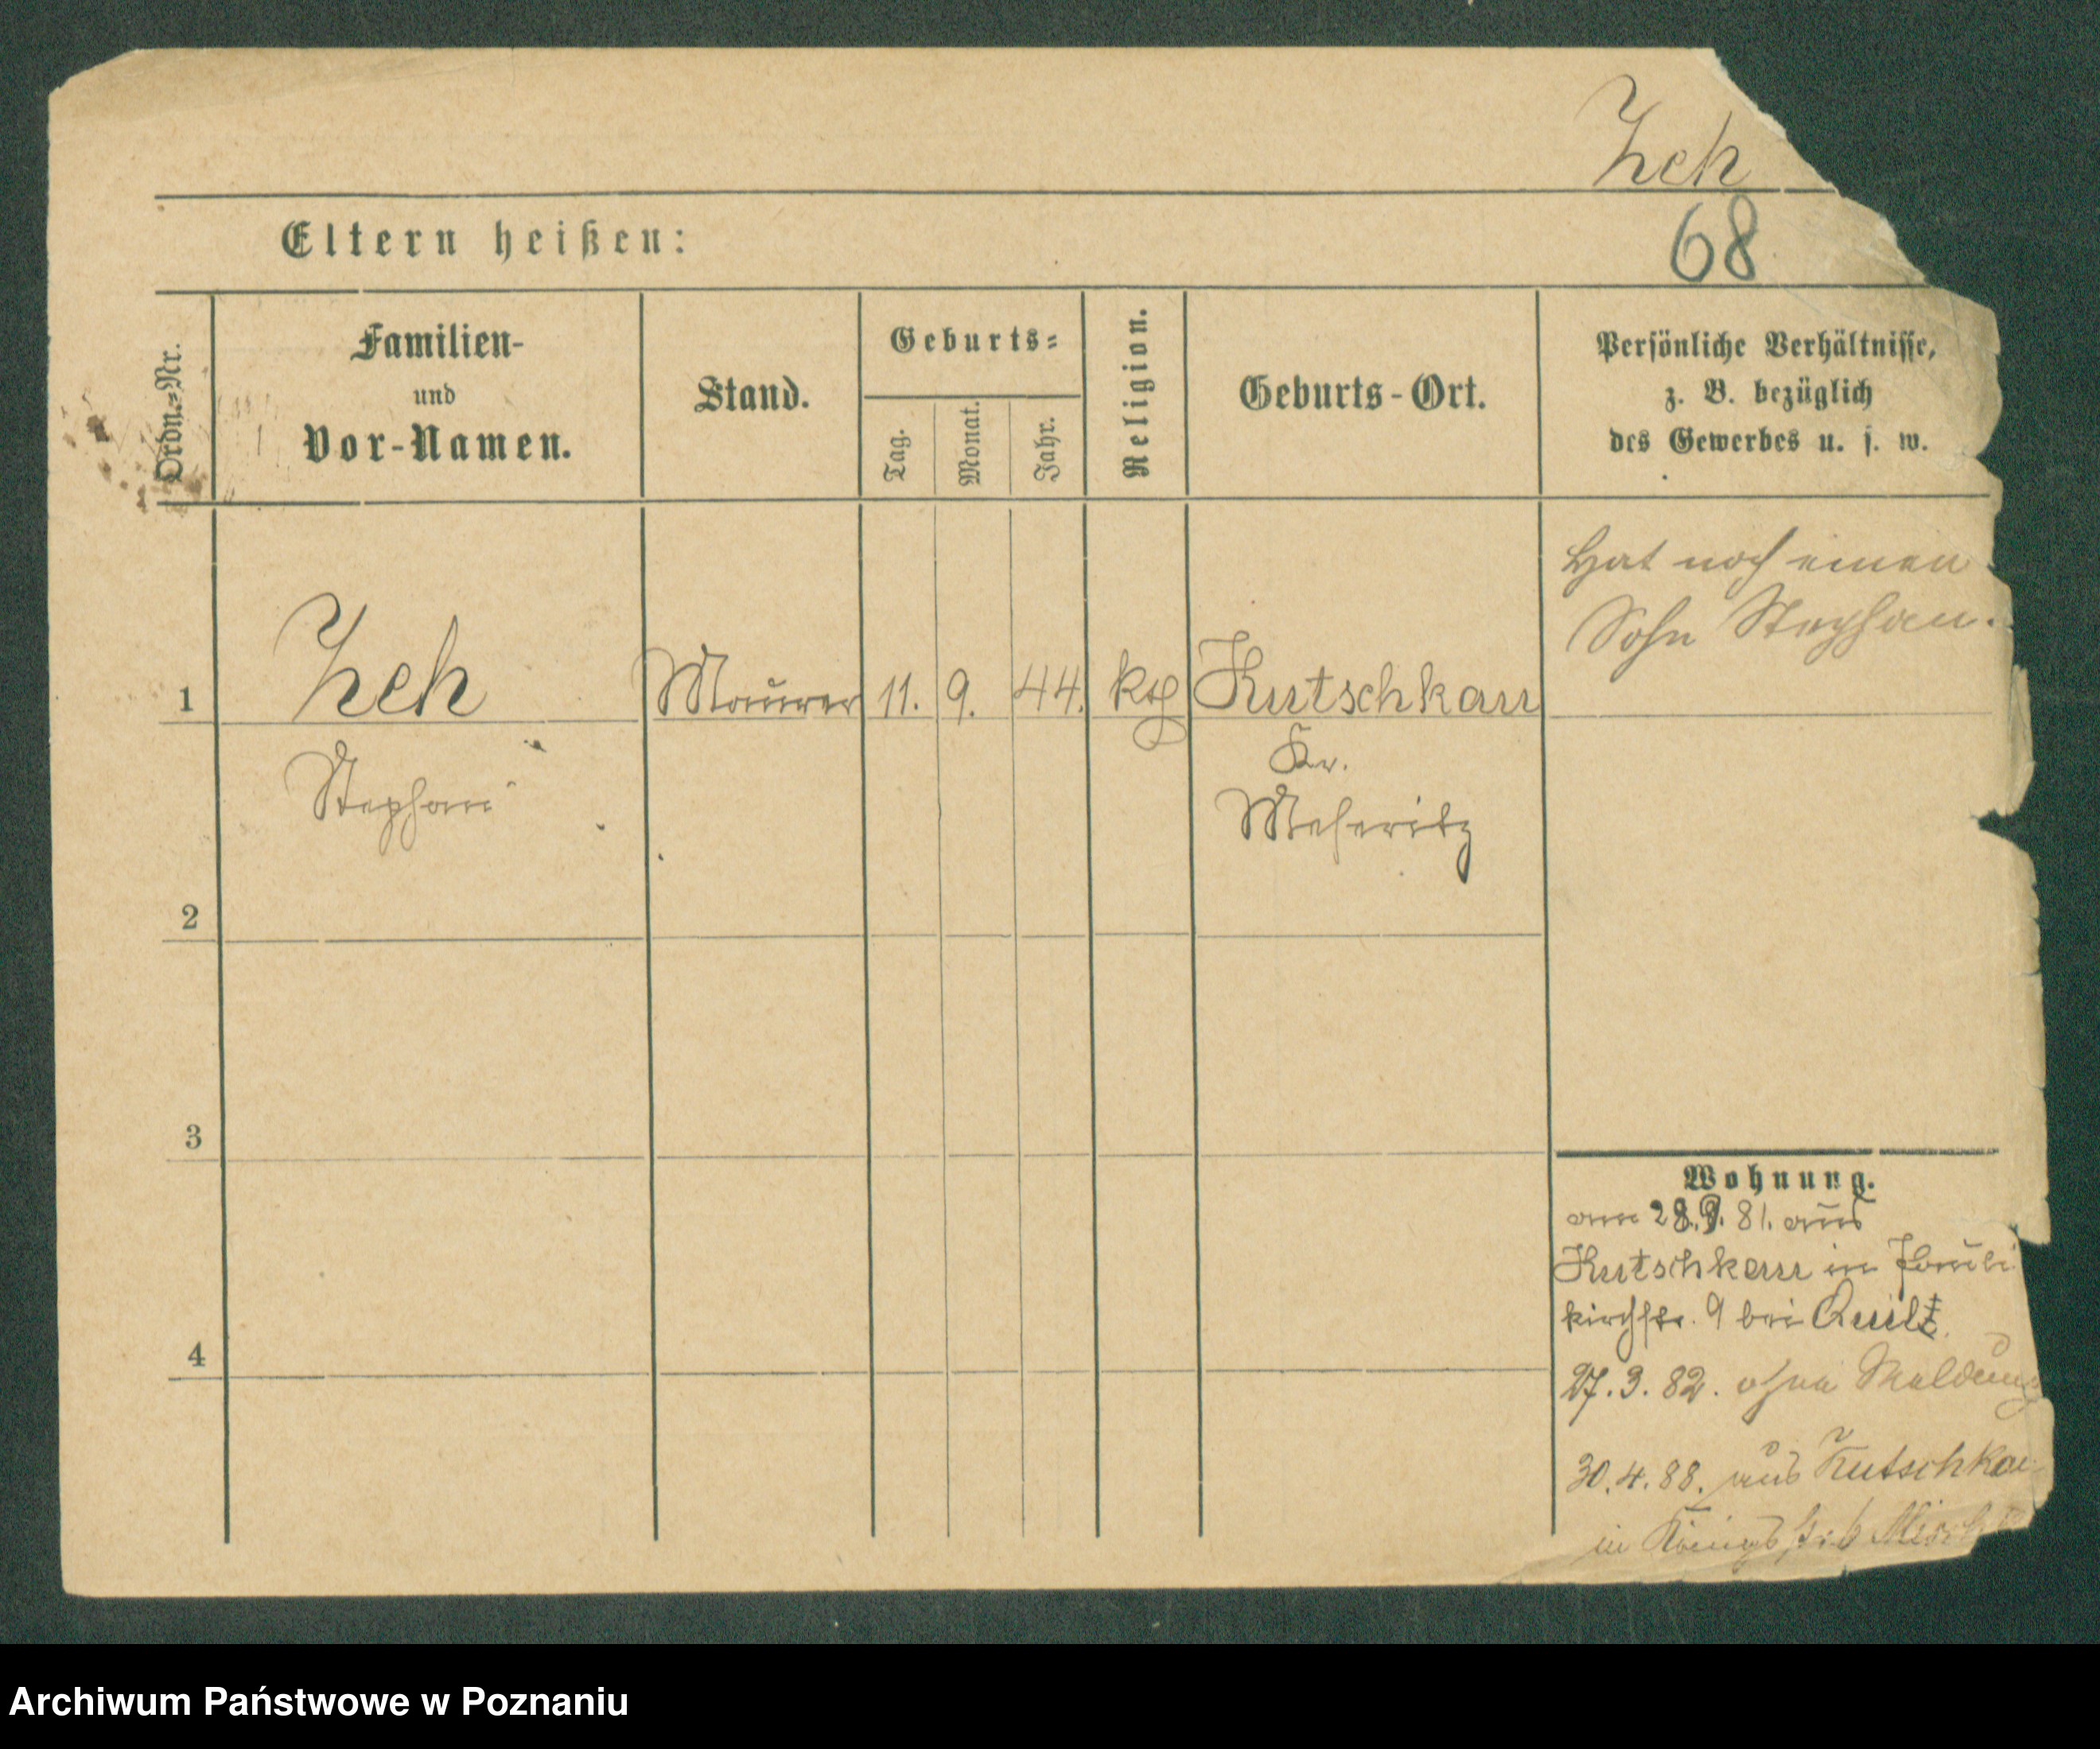 Zeh
68
Eltern heißen:
Ordn.-Nr.
Familien-
und
Vor-Namen.
Stand.
Geburts-
Tag.
Monat.
Jahr.
Religion.
Geburts-Ort.
Persönliche Verhältnisse,
z. B. bezüglich
des Gewerbes u. s. w.
Hat noch einen
Sohn Stephan.
1
Zeh
Maurer
11.
9.
44.
kth
Kutschkau
Stephan
Kr.
Meseritz
2
3
4
Wohnung.
am 28.9.81. aus
Kutschkau in Pauli
kirchstr. 9 bei Quilt.
27.3.82. ohne Meldung
30.4.88. aus Kutschkau
in Königsstr. 6
Archiwum Państwowe w Poznaniu